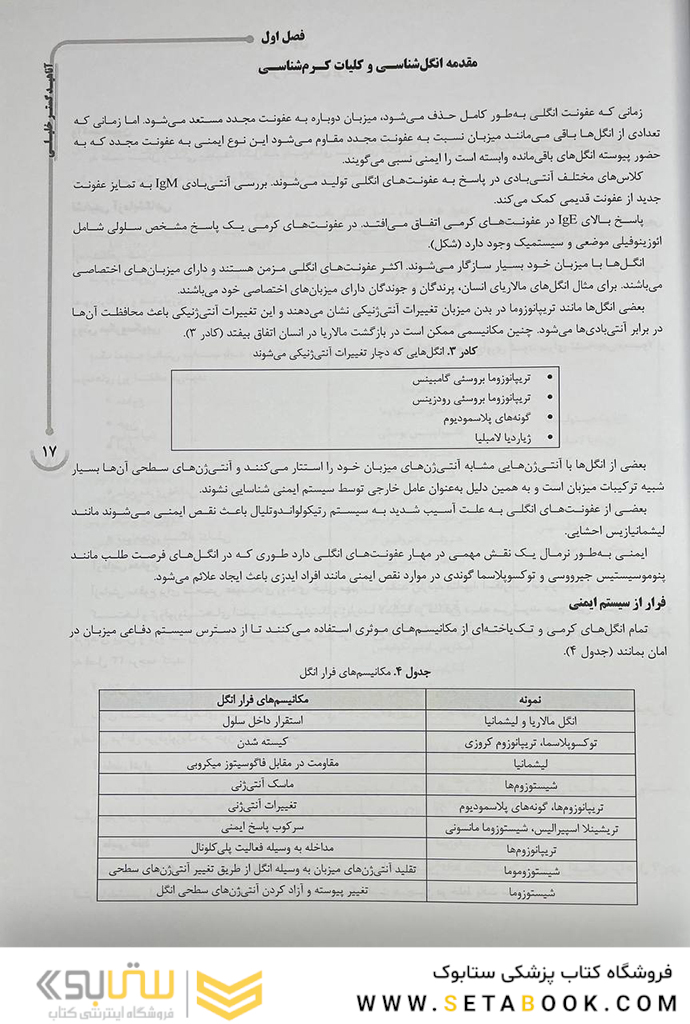 فصل اول
مقدمه انگل‌شناسی و کلیات کرم‌شناسی
آناهید گستر خلیلی
زمانی که عفونت انگلی به‌طور کامل حذف می‌شود، میزبان دوباره به عفونت مجدد مستعد می‌شود. اما زمانی که
تعدادی از انگل‌ها باقی می‌مانند میزبان نسبت به عفونت مجدد مقاوم می‌شود این نوع ایمنی به عفونت مجدد که به
حضور پیوسته انگل‌های باقی‌مانده وابسته است را ایمنی نسبی می‌گویند.
کلاس‌های مختلف آنتی‌بادی در پاسخ به عفونت‌های انگلی تولید می‌شوند. بررسی آنتی‌بادی IgM به تمایز عفونت
جدید از عفونت قدیمی کمک می‌کند.
پاسخ بالای IgE در عفونت‌های کرمی اتفاق می‌افتد. در عفونت‌های کرمی یک پاسخ مشخص سلولی شامل
ائوزینوفیلی موضعی و سیستمیک وجود دارد (شکل).
انگل‌ها با میزبان خود بسیار سازگار می‌شوند. اکثر عفونت‌های انگلی مزمن هستند و دارای میزبان‌های اختصاصی
می‌باشند. برای مثال انگل‌های مالاریای انسان، پرندگان و جوندگان دارای میزبان‌های اختصاصی خود می‌باشند.
بعضی انگل‌ها مانند تریپانوزوما در بدن میزبان تغییرات آنتی‌ژنیکی نشان می‌دهند و این تغییرات آنتی‌ژنیکی باعث محافظت آن‌ها
در برابر آنتی‌بادی‌ها می‌شود. چنین مکانیسمی ممکن است در بازگشت مالاریا در انسان اتفاق بیفتد (کادر ۳).
کادر ۳. انگل‌هایی که دچار تغییرات آنتی‌ژنیکی می‌شوند
• تریپانوزوما بروسئی گامبینس
• تریپانوزوما بروسئی رودزینس
• گونه‌های پلاسمودیوم
• ژیاردیا لامبلیا
۱۷
بعضی از انگل‌ها با آنتی‌ژن‌هایی مشابه آنتی‌ژن‌های میزبان خود را استتار می‌کنند و آنتی‌ژن‌های سطحی آن‌ها بسیار
شبیه ترکیبات میزبان است و به همین دلیل به‌عنوان عامل خارجی توسط سیستم ایمنی شناسایی نشوند.
بعضی از عفونت‌های انگلی به علت آسیب شدید به سیستم رتیکولواندوتلیال باعث نقص ایمنی می‌شوند مانند
لیشمانیازیس احشایی.
ایمنی به‌طور نرمال یک نقش مهمی در مهار عفونت‌های انگلی دارد طوری که در انگل‌های فرصت طلب مانند
پنوموسیستیس جیرووسی و توکسوپلاسما گوندی در موارد نقص ایمنی مانند افراد ایدزی باعث ایجاد علائم می‌شود.
فرار از سیستم ایمنی
تمام انگل‌های کرمی و تک‌یاخته‌ای از مکانیسم‌های موثری استفاده می‌کنند تا از دسترس سیستم دفاعی میزبان در
امان بمانند (جدول ۴).
جدول ۴. مکانیسم‌های فرار انگل
نمونه مکانیسم‌های فرار انگل
انگل مالاریا و لیشمانیا استقرار داخل سلول
توکسوپلاسما، تریپانوزوم کروزی کیسته شدن
لیشمانیا مقاومت در مقابل فاگوسیتوز میکروبی
شیستوزوم‌ها ماسک آنتی‌ژنی
تریپانوزوم‌ها، گونه‌های پلاسمودیوم تغییرات آنتی‌ژنی
تریشینلا اسپیرالیس، شیستوزوما مانسونی سرکوب پاسخ ایمنی
تریپانوزوم‌ها مداخله به وسیله فعالیت پلی‌کلونال
شیستوزوموما تقلید آنتی‌ژن‌های میزبان به وسیله انگل از طریق تغییر آنتی‌ژن‌های سطحی
شیستوزوما تغییر پیوسته و آزاد کردن آنتی‌ژن‌های سطحی انگل
فروشگاه کتاب پزشکی ستابوک
WWW.SETABOOK.COM
ستابوک
فروشگاه اینترنتی کتاب